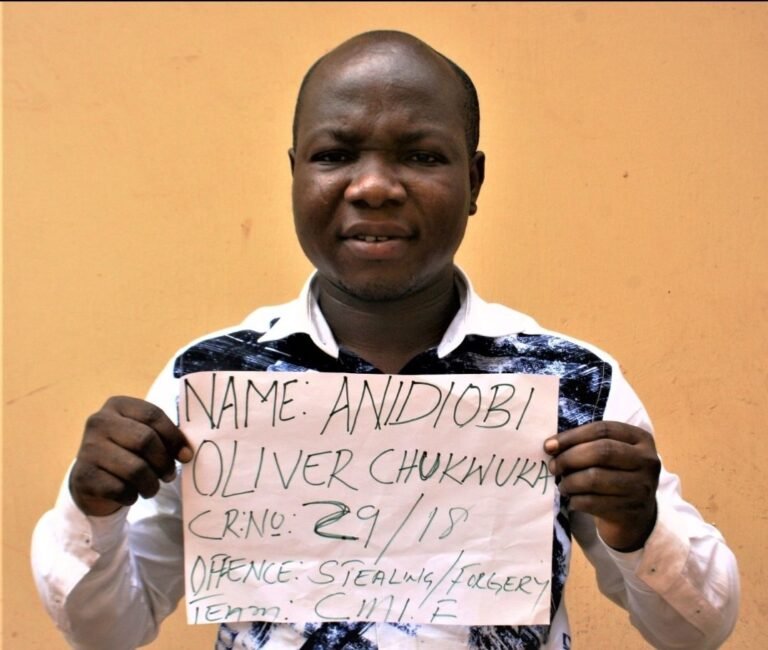 NAME: ANIDIOBI
OLIVER CHUKWUKA
CR:NO: 29/18
OFFENCE: STEALING/FORGERY
TEAM: CMI.F